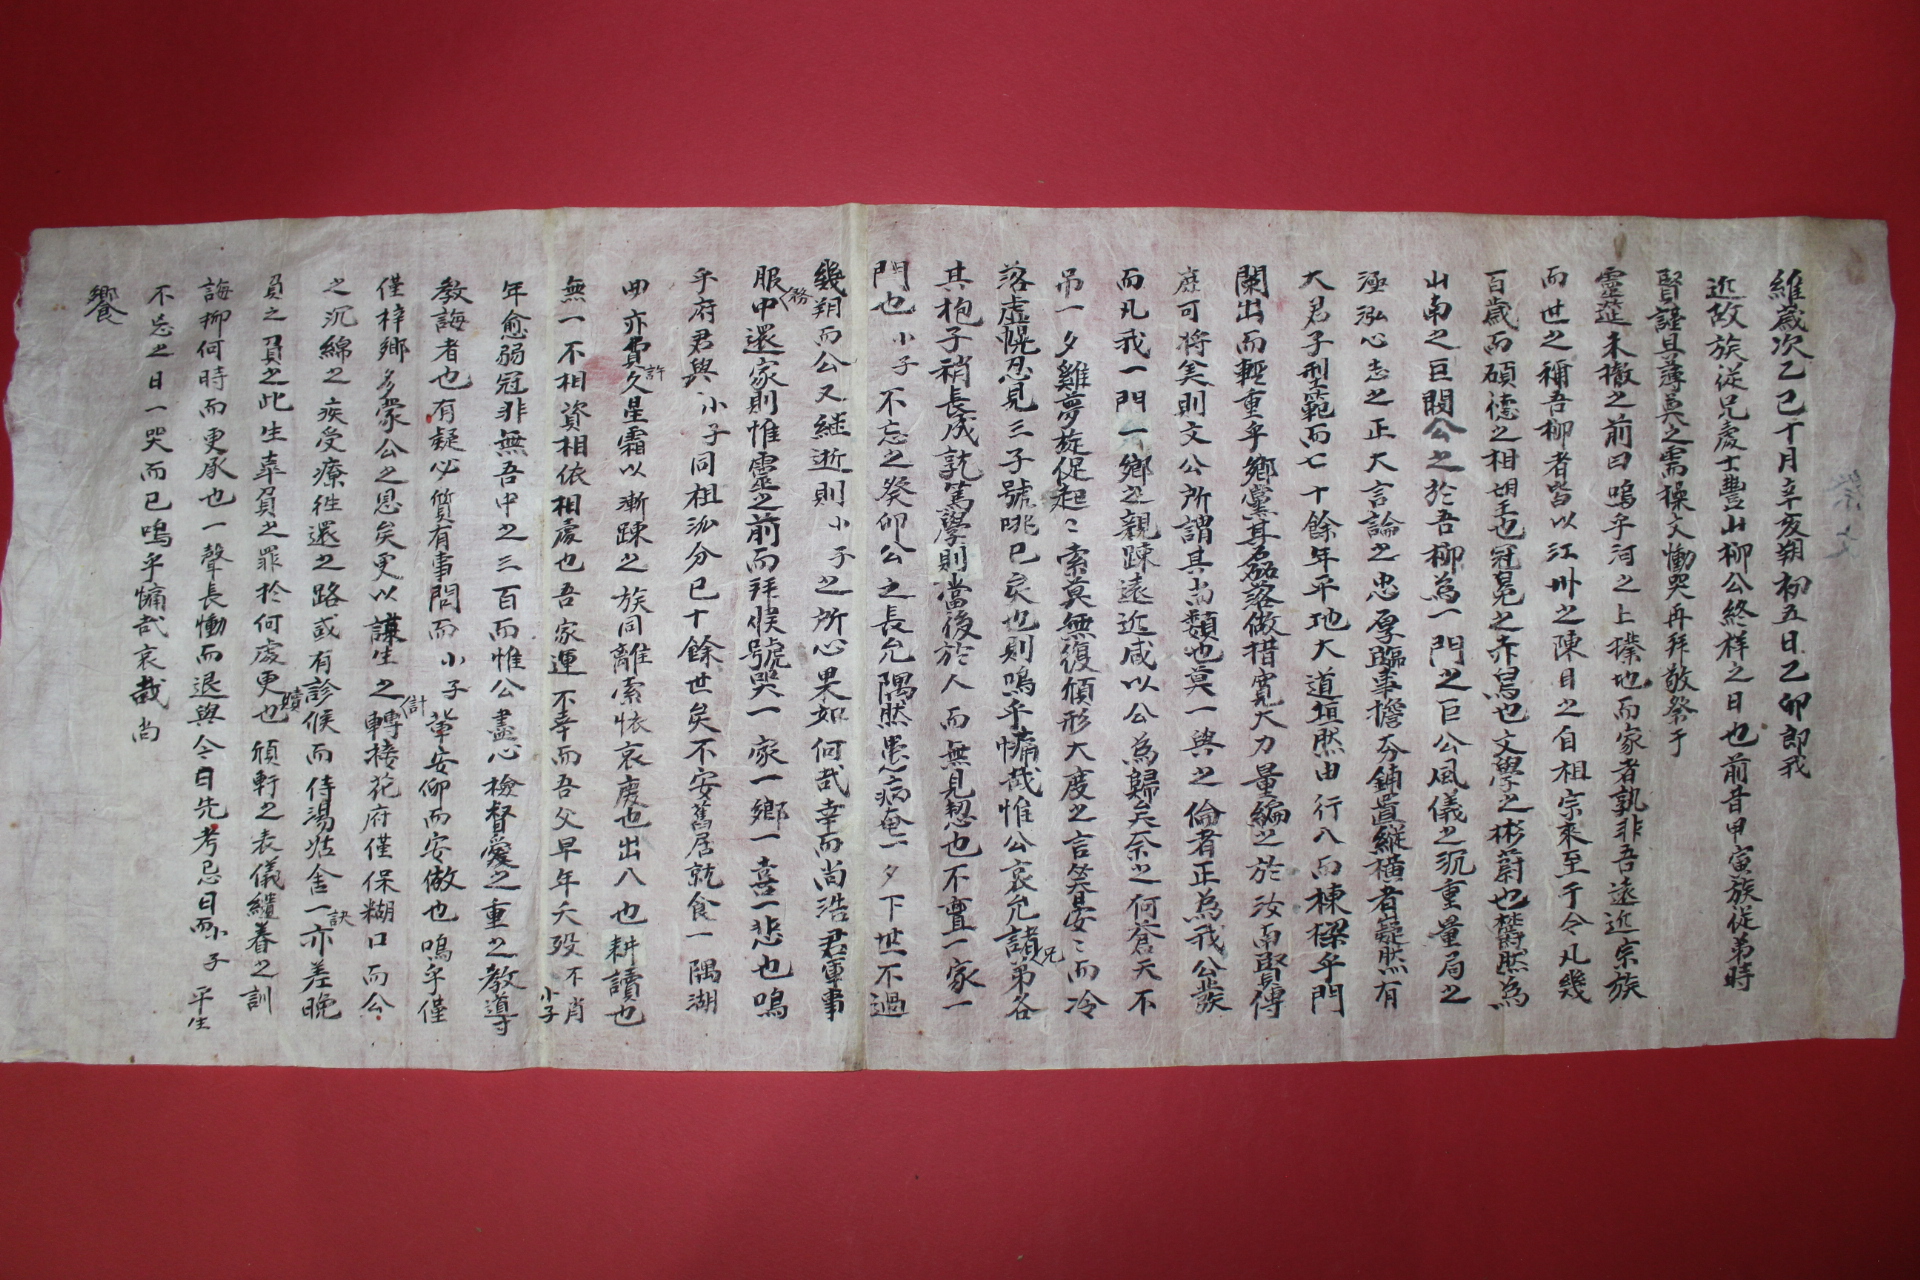 維歲次乙巳十月辛亥朔初五日乙卯郎我
近故族從兄處士豊山柳公終祥之日也前昔甲寅族從弟時
賢謹具薄奠之需操文慟哭再拜敬祭于
靈筵未撤之前曰嗚乎河之上撲地而家者孰非吾遠近宗族
而世之稱吾柳者皆以江州之陳目之自祖宗來至于今凡幾
百歲而碩德之相望也冠冕之赤舄也文學之彬蔚也欝然爲
山南之巨閥公之於吾柳爲一門之巨公風儀之沉重量局之
泓心志之正大言論之忠厚臨事擔夯鋪置縱橫者嶷然有
大君子型範而七十餘年平地大道坦然由行入而棟樑乎門
闌出而輕重乎鄉黨其磊落做措寬大力量編之於汝南賢傳
庶可將美則文公所謂其尚類也莫一與之倫者正爲我公裝
而凡我一門一鄉之親踈遠近咸以公爲歸矣奈之何蒼天不
吊一夕雞夢旋促起〻索莫無復傾形大度之言笑晏〻而冷
落虛幌忍見三子號咷已哀也則嗚乎慟哉惟公哀允諸弟各
其抱子稍長成就篤學則當後於人而無見愬也不啻一家一
門也小子不忘之癸卯公之長允隅然患病奄一夕下世不過
幾朔而公又継逝則小子之所心果如何哉幸而尚浩君軍事
服中還家則惟靈之前而拜候號哭一家一鄉一喜一悲也嗚
務
乎府君與小子同祖派分已十餘世矣不安舊居就食一隅湖
曲亦費久星霜以漸踈之族同離索依哀慶也出入也耕讀也
許
無一不相資相依相處也吾家運不幸而吾父早年夭歿不肖
小子
年愈弱冠非無吾中之三百而惟公盡心檢督愛之重之教導
教誨者也有疑必質有事問而小子輩安仰而安倣也嗚乎僅
僅梓鄉多蒙公之恩矣更以謀生之轉接花府僅保糊口而公
計
之沉綿之疾受療徃還之路或有診候而侍湯沽舍一亦差晚
訣
負之負之此生辜負之罪於何處更也頎軒之表儀繾眷之訓
贖
誨抑何時而更承也一聲長慟而退與今日先考忌日而小子平生
不忘之日一哭而已嗚乎慟哉哀哉尚
饗
祭文